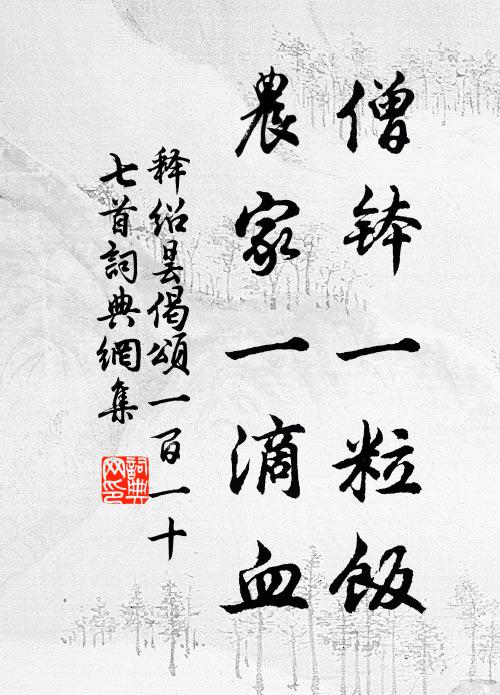 僧鉢一粒飯
農家一滴血
释绍昙偈頌一百一十
七首詞典網集
詞典
网印